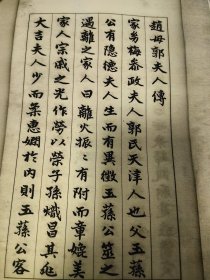 趙母郭夫人傳
家勇梅叅政夫人郭氏天津人也父玉蓀
公有隱德夫人生而有異徵玉蓀公筮之
遇離之家人曰離火振振有附而章媲美
家人宗戚之光作勞以榮子孫熾昌其兆
大吉夫人少而棐惠嫻於內則玉蓀公客